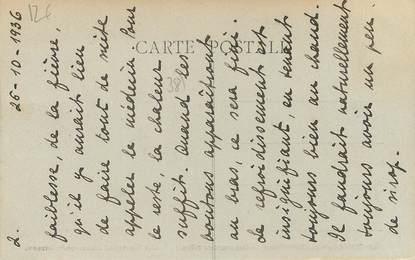 12€
CARTE POSTALE
381
2. 26-10-1936
faiblesse, de la fièvre,
qu'il y aurait lieu
de faire tout de suite
appeler le médecin. Pour
le reste, la chaleur
suffit. Quand les
boutons apparaîtront
au bras, ce sera fini.
Le refroidissement est
insignifiant, en tenant
toujours bien au chaud.
Il faudrait naturellement
toujours avoir un peu
de sirop.